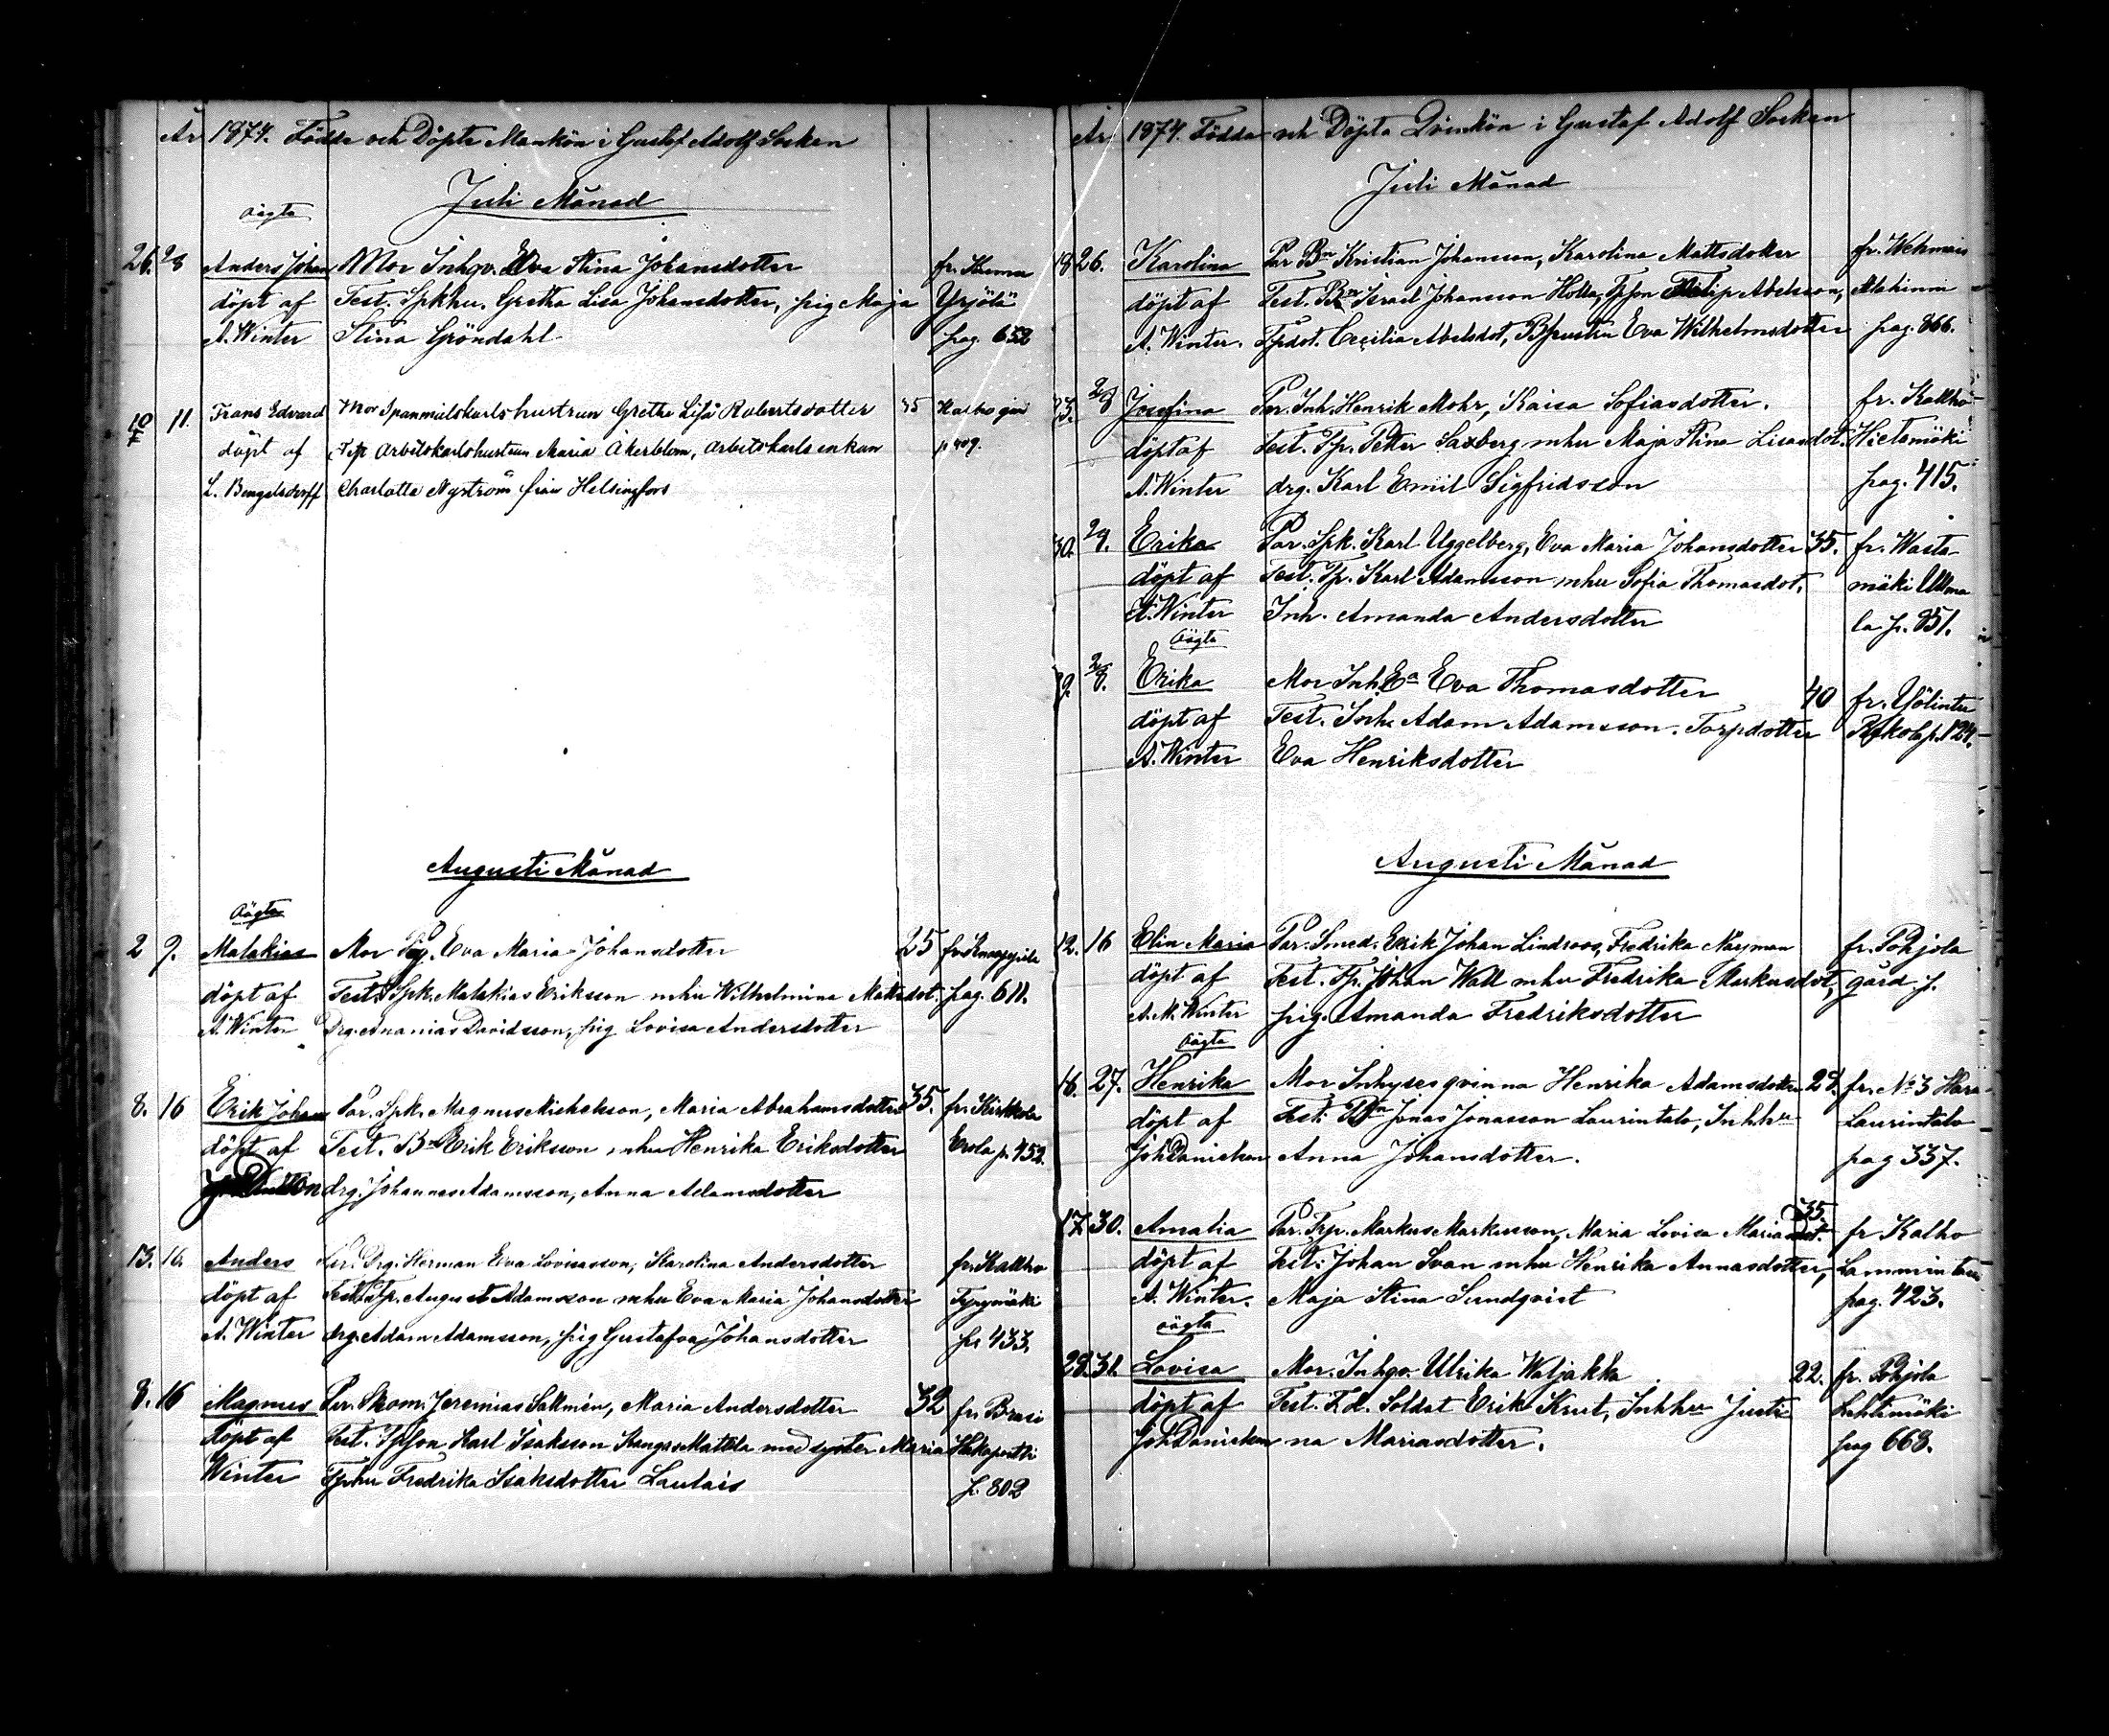 År 1874. Födde och Döpte Mankön i Gustaf Adolf Socken
Juli Månad
oägta
26. 2/8 Anders Johan Mor Inhqv. Eva Stina Johansdotter fr.
döpt af Test. Spkhu. Gretha Lisa Johansdotter, pig Maja Yrjölä
A. Winter Stina Gröndahl pag. 652
10 11. Frans Edvard Mor Spanmålskarlshustrun Gretha Lisa Robertsdotter 35
döpt af arbetskarlshustrun Maria Åkerblom, arbetskarls enkan p 409.
L. Bengelsdorff Charlotta Nyström från Helsingfors
Augusti Månad
oägta
2 9. Malakias Mor Pig. Eva Maria Johansdotter 25
döpt af Test. Spk. Malakias Eriksson mhu Wilhelmina Mattsdot. pag. 611.
A. Winter Drg. Ananias Davidsson, pig Lovisa Andersdotter
8. 16 Erik Johan Par. Spk. Magnus Michelsson, Maria Abrahamsdotter 35. fr. Kirkkola
döpt af Test. Bn Erik Eriksson mhu Henrika Eriksdotter Erola p. 452.
drg. Johannes Adamsson, Anna Adamsdotter
13. 16. Anders Par. Drg. Herman Eva Lovisasson, Karolina Andersdotter fr. Kalho
döpt af Test. Tp. August Adamsson mhu Eva Maria Johansdotter
A. Winter drg. Adam Adamsson, pig Gustafva Johansdotter p. 433.
8. 16 Magnus Par. Skom. Jeremias Sallmén, Maria Andersdotter 32
döpt af Test. Tpson Karl Isaksson Kangas Mattila med syster Maria
Winter Tphu Fredrika Isaksdotter Lautais p. 802
År 1874. Födda och Döpta Qvinkön i Gustaf Adolf Socken
Juli Månad
18 26. Karolina Par Bn Kristian Johansson, Karolina Mattsdotter fr. Wehmais
döpt af Test. Bn Israel Johansson Holla, Tpson Filip Abelsson, Alahinni
A. Winter. Tpdot. Cecilia Abelsdot, Bhustru Eva Wilhelmsdotter pag. 866.
2/8 Josefina Par. Inh. Henrik Mohr, Kaisa Sofiasdotter. fr. Kalkho
döpt af Test. Tp. Petter Saxberg mhu Maja Stina Lisasdot. Hietamäki
A. Winter drg. Karl Emil Sigfridsson pag. 415.
30. 2/8. Erika Par. Spk. Karl Uggelberg, Eva Maria Johansdotter 35. fr. Wasta
döpt af Test. Tp. Karl Adamsson mhu Sofia Thomasdot. mäki
A. Winter Inh. Amanda Andersdotter la p. 851.
oägta
2/8. Erika Mor Inh. Ea Eva Thomasdotter 40
döpt af Test. Inh. Adam Adamsson. Torpdotter
A. Winter Eva Henriksdotter
Augusti Månad
12. 16 Elin Maria Par. Smed. Erik Johan Lindroos, Fredrika Nayman fr. Pohjola
döpt af Test. Tp. Johan Wall mhu Fredrika Markusdot, gård p.
A. M. Winter pig. Amanda Fredriksdotter
oägta
16. 27. Henrika Mor Inhysesqvinna Henrika Adamsdotter 28. fr. No 3
döpt af Test. Bn Jonas Jonasson Laurintalo, Inhhu Laurintalo
Joh Danielson Anna Johansdotter. pag 337.
17. 30. Amalia Par. Trp. Markus Markusson, Maria Lovisa Mariasdot. 35. fr Kalho
döpt af Test. Johan Svan mhu Henrika Annasdotter,
A. Winter. Maja Stina Sundqvist pag. 423.
oägta
28. 31. Lovisa Mor. Inhqv. Ulrika Waljakka 22. fr. Pohjola
döpt af Test. F.d. Soldat Erik Krut, Inhhu Justi Lehtimäki
Joh Danielson na Mariasdotter. pag 668.